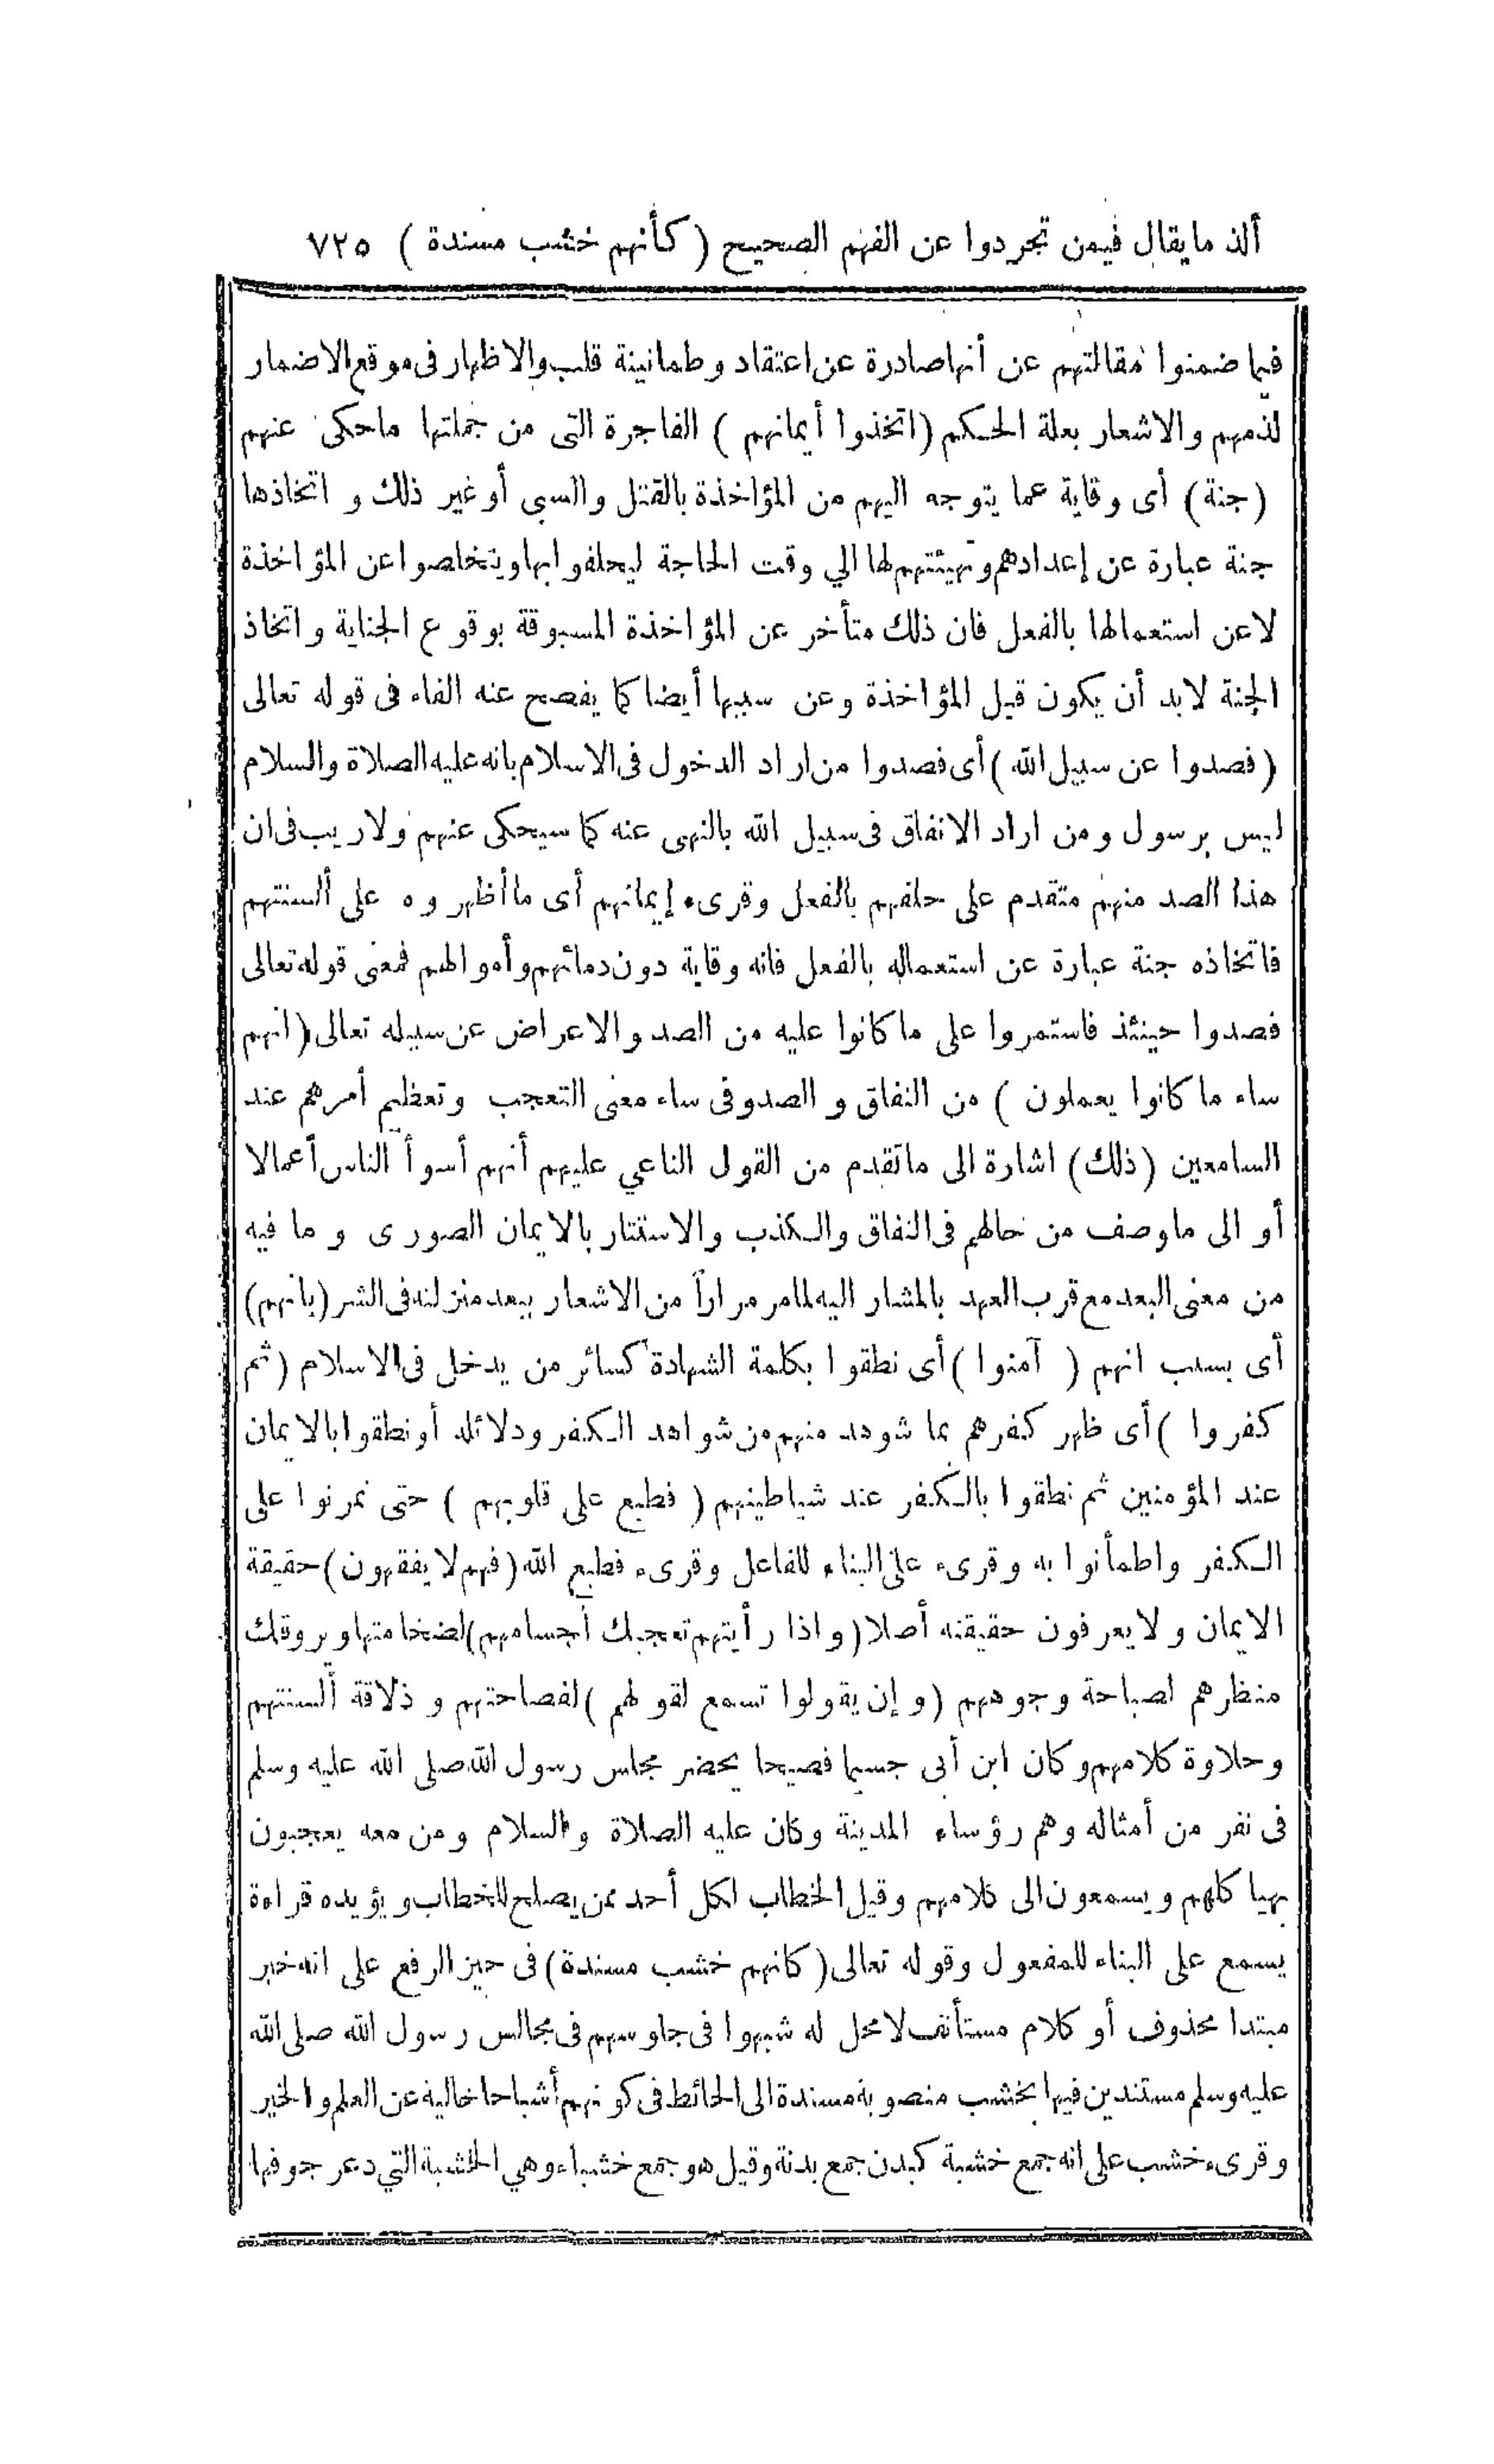 ألذ ما يقال فيمن تجردوا عن الفهم الصحيح ( كأنهم خشب مسندة ) ٧٢٥
فيما ضمنوا مقالتهم عن أنها صادرة عن اعتقاد وطمانينة قلب والاظهار فى موقع الاضمار
لذمهم والاشعار بعلة الحكم (اتخذوا أيمانهم ) الفاجرة التى من جملتها ما حكى عنهم
(جنة) أى وقاية عما يتوجه اليهم من المؤاخذة بالقتل والسبى أو غير ذلك و اتخاذها
جنة عبارة عن إعدادهم وتهيئتهم لها الي وقت الحاجة ليحلفوا بها ويتخاصوا عن المؤاخذة
لا عن استعمالها بالفعل فان ذلك متأخر عن المؤاخذة المسبوقة بوقوع الجناية واتخاذ
الجنة لا بد أن يكون قبل المؤاخذة وعن سببها أيضا كما يفصح عنه الفاء فى قوله تعالى
( فصدوا عن سبيل الله ) أى فصدوا من اراد الدخول فى الاسلام بانه عليه الصلاة والسلام
ليس برسول ومن اراد الانفاق فى سبيل الله بالنهى عنه كما سيحكى عنهم ولا ريب فى ان
هذا الصد منهم متقدم على حلفهم بالفعل وقرىء إيمانهم أى ما أظهروه على ألسنتهم
فاتخاذه جنة عبارة عن استعماله بالفعل فانه وقاية دون دمائهم وأموالهم فمعنى قوله تعالى
فصدوا حينئذ فاستمروا على ما كانوا عليه من الصد والاعراض عن سبيله تعالى (انهم
ساء ما كانوا يعملون ) من النفاق و الصد وفى ساء معنى التعجب وتعظيم أمرهم عند
السامعين (ذلك) اشارة الى ما تقدم من القول الناعي عليهم أنهم أسوأ الناس أعمالا
أو الى ما وصف من حالهم فى النفاق والكذب والاستتار بالايمان الصورى وما فيه
من معنى البعد مع قرب العهد بالمشار اليه لما مر مراراً من الاشعار ببعد منزلته فى الشر (بانهم)
أى بسبب انهم ( آمنوا ) أى نطقوا بكلمة الشهادة كسائر من يدخل فى الاسلام (ثم
كفروا ) أى ظهر كفرهم بما شوهد منهم من شواهد الكفر ودلائله أو نطقوا بالايمان
عند المؤمنين ثم نطقوا بالكفر عند شياطينهم ( فطبع على قلوبهم ) حتى تمرنوا على
الكفر واطمأنوا به وقرىء على البناء للفاعل وقرىء فطبع الله (فهم لا يفقهون) حقيقة
الايمان ولا يعرفون حقيقته أصلا (واذا رأيتهم تعجبك أجسامهم) لضخامتها ويروقك
منظرهم لصباحة وجوههم (وإن يقولوا تسمع لقولهم ) لفصاحتهم وذلاقة ألسنتهم
وحلاوة كلامهم وكان ابن أبى جسيما فصيحا يحضر مجلس رسول الله صلى الله عليه وسلم
فى نفر من أمثاله وهم رؤساء المدينة وكان عليه الصلاة والسلام ومن معه يعجبون
بهيا كلهم ويسمعون الى كلامهم وقيل الخطاب لكل أحد ممن يصلح للخطاب ويؤيده قراءة
يسمع على البناء للمفعول وقوله تعالى ( كانهم خشب مسندة) فى حيز الرفع على انه خبر
مبتدا محذوف أو كلام مستأنف لا محل له شبهوا فى جلوسهم فى مجالس رسول الله صلى الله
عليه وسلم مستندين فيها بخشب منصوبة مسندة الى الحائط فى كونهم أشباحا خالية عن العلم والخير
وقرىء خشب على انه جمع خشبة كبدن جمع بدنة وقيل هو جمع خشباء وهي الخشبة التي دعر جوفها